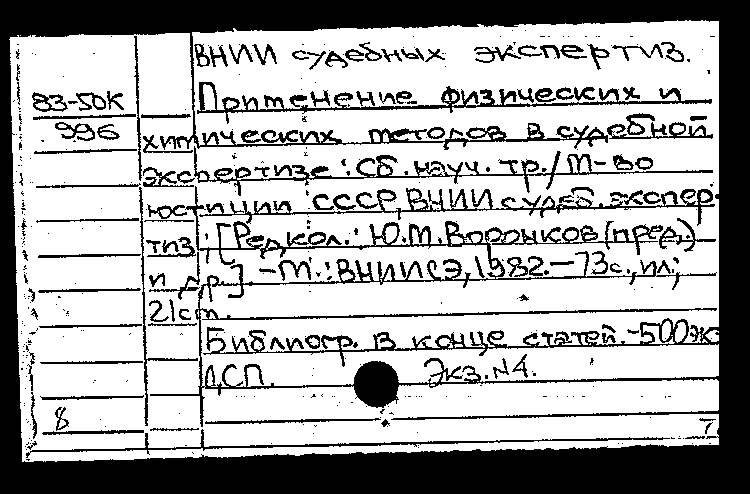 ВНИИ судебных экспертиз.
83-50К
Применение физических и
996
химических методов в судебной
экспертизе : Сб. науч. тр./ М-во
юстиции СССР, ВНИИ судеб. экспер-
тиз ; [Редкол.: Ю.М. Воронков (пред.)
и др.]. - М.: ВНИИСЭ, 1982. - 73с., ил.;
21см.
Библиогр. в конце статей. - 500экз
ДСП. Экз. N4.
8